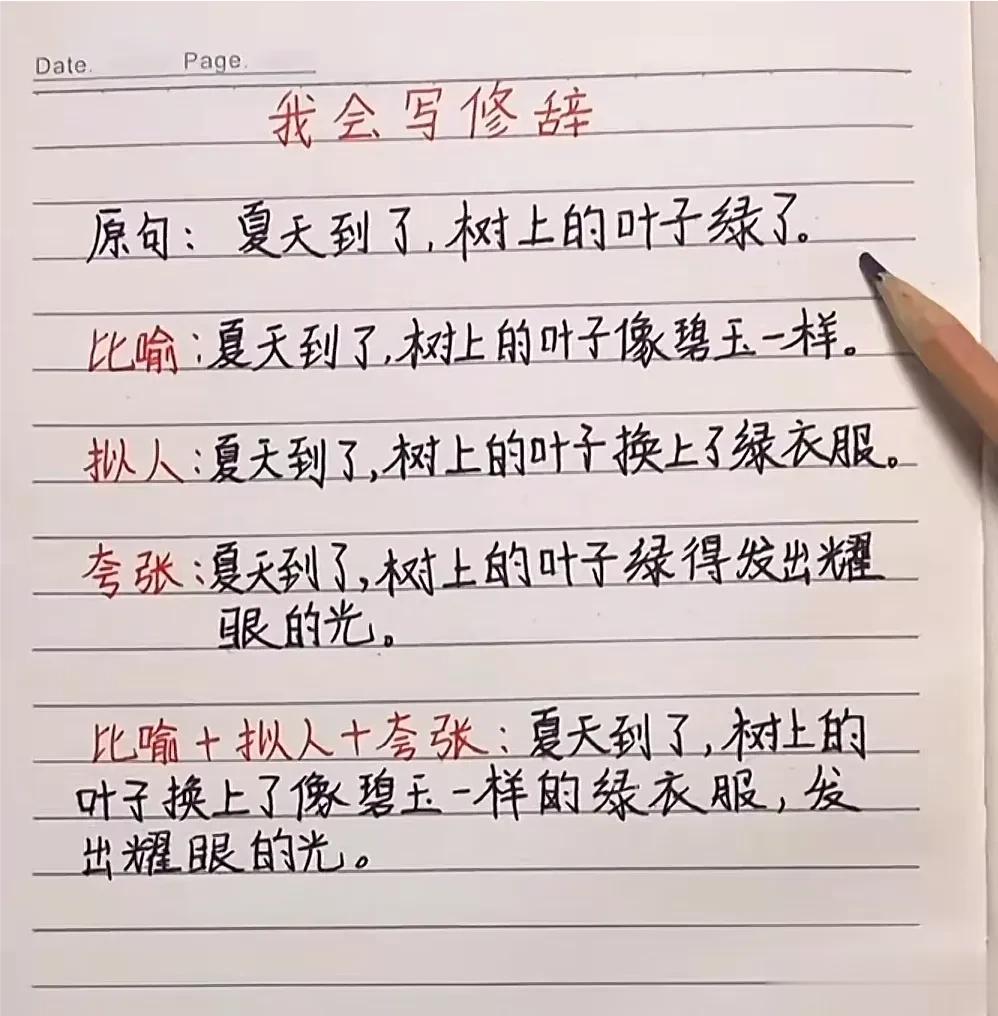 Date. Page.
我会写修辞
原句：夏天到了，树上的叶子绿了。
比喻：夏天到了，树上的叶子像碧玉一样。
拟人：夏天到了，树上的叶子换上了绿衣服。
夸张：夏天到了，树上的叶子绿得发出耀
眼的光。
比喻＋拟人＋夸张：夏天到了，树上的
叶子换上了像碧玉一样的绿衣服，发
出耀眼的光。